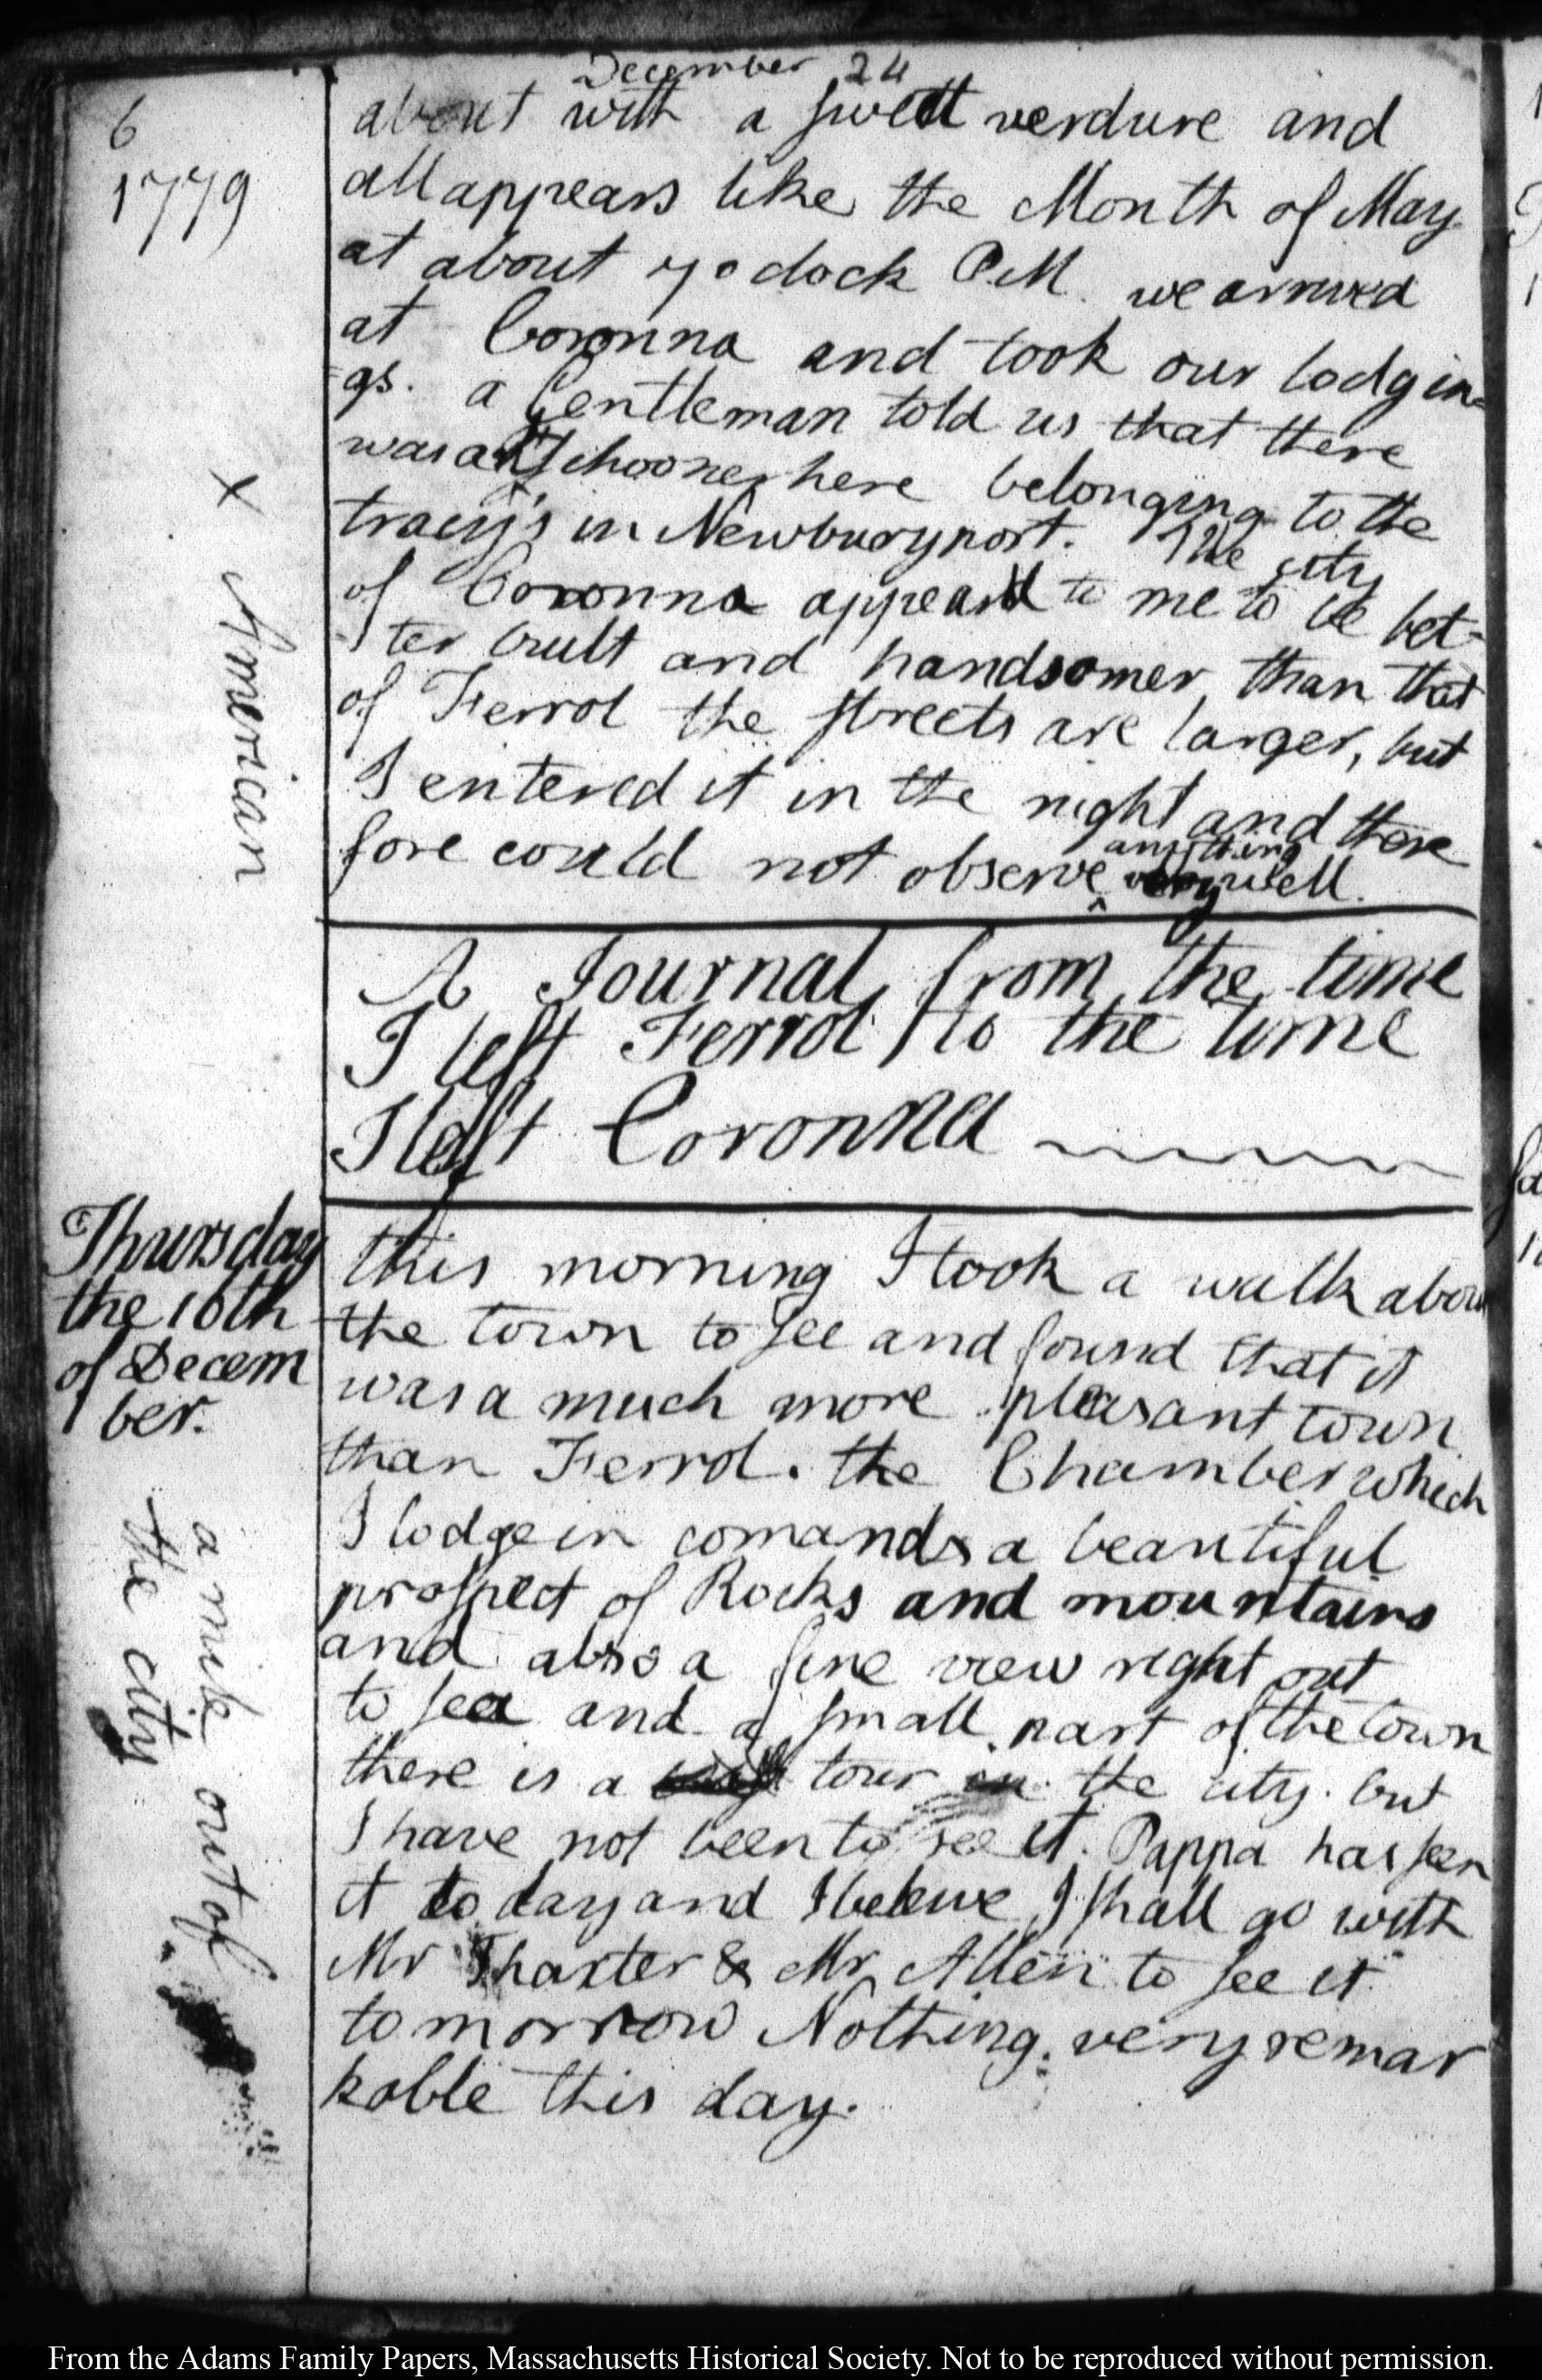 December 24
6
1779
about with a sweet verdure and
all appears like the Month of May
at about 7 o clock P.M. we arrived
at Coronna and took our lodgin=
=gs. a Gentleman told us that there
was a x Schooner here belonging to the
tracy's in Newburyport. The city
of Coronna appeard to me to be bet-
ter built and handsomer than that
of Ferrol the streets are larger, but
I entered it in the night and there
fore could not observe ^ anything very well.
x American
A Journal from the time
I left Ferrol to the time
I left Coronna
Thursday
the 16th
of Decem
ber.
this morning I took a walk about
the town to see and found that it
was a much more pleasant town
than Ferrol. the Chamber which
I lodge in comands a beautiful
prospect of Rocks and mountains
and also a fine view right out
to sea and a small part of the town
there is a tour in the city. but
I have not been to see it. Pappa has seen
it to day and I beleive I shall go with
Mr Thaxter & Mr Allen to see it
tomorrow Nothing very remar
kable this day.
a mile out of
the city
From the Adams Family Papers, Massachusetts Historical Society. Not to be reproduced without permission.